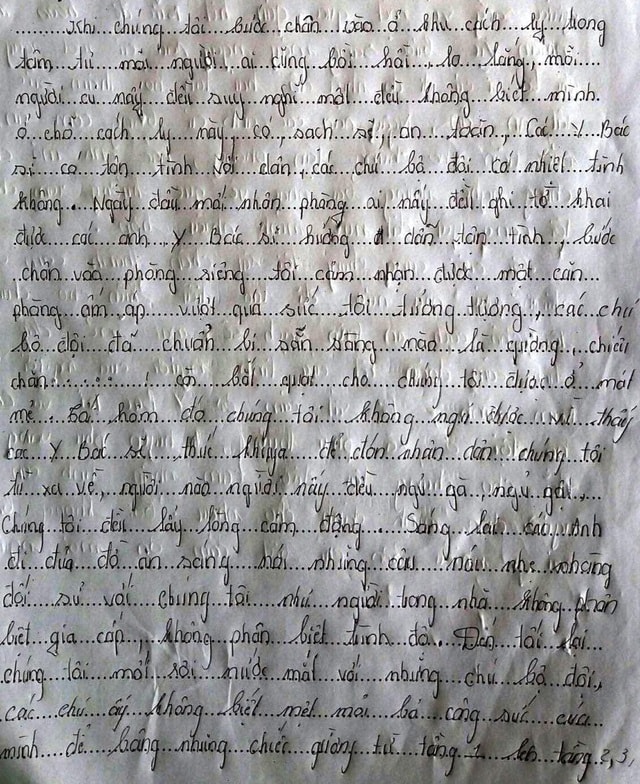 .........Khi...chúng...tôi...bước...chân...vào...ở...khu...cách...ly...trong
tâm...tư...mỗi...người...ai...cũng...bồi...hồi...lo...lắng...mỗi...
người...cứ...nấy...đều...suy...nghĩ...một...đều...không...biết...mình.
ở...chỗ...cách...ly...này...có...sạch...sẽ...an...toàn...Các...Y...Bác
sĩ...có...tận...tình...với...dân...các...chú...bộ...đội...có...nhiệt...tình
không...Ngày...đầu...mới...nhận...phòng...ai...nấy...đều...ghi...tờ...khai
được...các...anh...Y...Bác...sĩ...hướng...dẫn...tận...tình...bước
chân...vào...phòng...riêng...tôi...cảm...nhận...được...một...căn...
phòng...ấm...áp...vượt...quá...sức...tôi...tưởng...tượng...các...chú
bộ...đội...đã...chuẩn...bị...sẵn...sàng...nào...là...giường...chiếu
chăn...còn...bắt...quạt...cho...chúng...tôi...được...ở...mát
mẻ...hôm...đó...chúng...tôi...không...ngủ...được...vì...thấy
các...Y...Bác...sĩ...thức...khuya...để...đón...nhân...dân...chúng...tôi
từ...xa...về...người...nào...người...nấy...đều...ngủ...gà...ngủ...gật...
Chúng...tôi...đều...lấy...lòng...cảm...động...Sáng...lại...các...Anh
đi...đưa...đồ...ăn...sáng...nói...những...câu...nói...nhẹ...nhàng
đối...sử...với...chúng...tôi...như...người...trong...nhà...không...phân
biệt...gia...cấp...không...phân...biệt...trình...độ...Đến...tối...lại...
chúng...tôi...mới...rơi...nước...mắt...với...những...chú...bộ...đội,
các...chú...ấy...không...biết...mệt...mỏi...bỏ...công...sức...của...
mình...để...bâng...những...chiếc...giường...từ...tầng...1...lên...tầng...2,3,